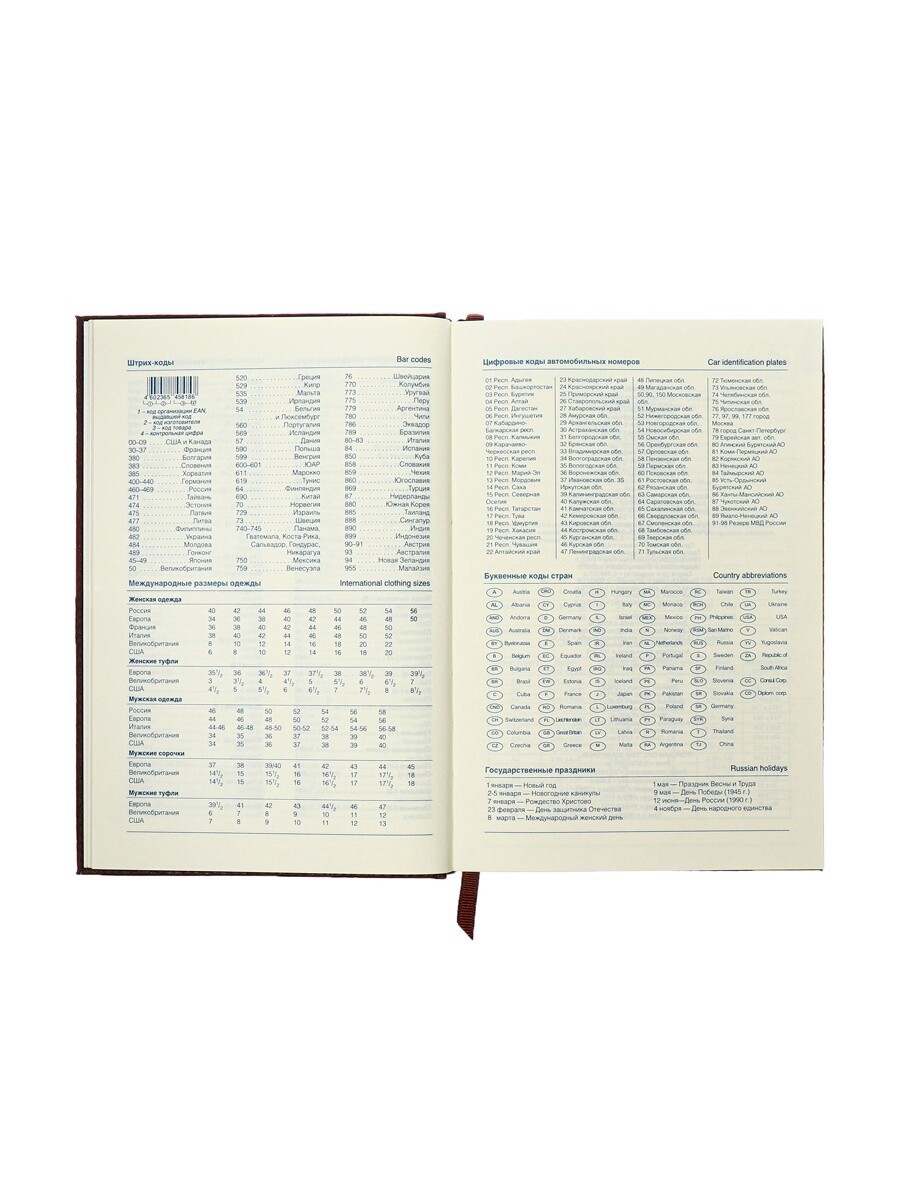 Штрих-коды Bar codes
4 602365 458186
1 – код организации EAN,
выдавшей код
2 – код изготовителя
3 – код товара
4 – контрольная цифра
00–09 США и Канада
30–37 Франция
380 Болгария
383 Словения
385 Хорватия
400–440 Германия
460–469 Россия
471 Тайвань
474 Эстония
475 Латвия
477 Литва
480 Филиппины
482 Украина
484 Молдова
489 Гонконг
45–49 Япония
50 Великобритания
520 Греция
529 Кипр
535 Мальта
539 Ирландия
54 Бельгия
и Люксембург
560 Португалия
569 Исландия
57 Дания
590 Польша
599 Венгрия
600–601 ЮАР
611 Марокко
619 Тунис
64 Финляндия
690 Китай
70 Норвегия
729 Израиль
73 Швеция
740–745 Панама,
Гватемала, Коста-Рика,
Сальвадор, Гондурас,
Никарагуа
750 Мексика
759 Венесуэла
76 Швейцария
770 Колумбия
773 Уругвай
775 Перу
779 Аргентина
780 Чили
786 Эквадор
789 Бразилия
80–83 Италия
84 Испания
850 Куба
858 Словакия
859 Чехия
860 Югославия
869 Турция
87 Нидерланды
880 Южная Корея
885 Таиланд
888 Сингапур
890 Индия
899 Индонезия
90–91 Австрия
93 Австралия
94 Новая Зеландия
955 Малайзия
Международные размеры одежды International clothing sizes
Женская одежда
Россия 40 42 44 46 48 50 52 54 56
Европа 34 36 38 40 42 44 46 48 50
Франция 36 38 40 42 44 46 48 50
Италия 38 40 42 44 46 48 50 52
Великобритания 8 10 12 14 16 18 20 22
США 6 8 10 12 14 16 18 20
Женские туфли
Европа 35 1/2 36 36 1/2 37 37 1/2 38 38 1/2 39 39 1/2
Великобритания 3 3 1/2 4 4 1/2 5 5 1/2 6 6 1/2 7
США 4 1/2 5 5 1/2 6 6 1/2 7 7 1/2 8 8 1/2
Мужская одежда
Россия 46 48 50 52 54 56 58
Европа 44 46 48 50 52 54 56
Италия 44-46 46-48 48-50 50-52 52-54 54-56 56-58
Великобритания 34 35 36 37 38 39 40
США 34 35 36 37 38 39 40
Мужские сорочки
Европа 37 38 39/40 41 42 43 44 45
Великобритания 14 1/2 15 15 1/2 16 16 1/2 17 17 1/2 18
США 14 1/2 15 15 1/2 16 16 1/2 17 17 1/2 18
Мужские туфли
Европа 39 1/2 41 42 43 44 1/2 46 47
Великобритания 6 7 8 9 10 11 12
США 7 8 9 10 11 12 13
Цифровые коды автомобильных номеров Car identification plates
01 Респ. Адыгея
02 Респ. Башкортостан
03 Респ. Бурятия
04 Респ. Алтай
05 Респ. Дагестан
06 Респ. Ингушетия
07 Кабардино-
Балкарская респ.
08 Респ. Калмыкия
09 Карачаево-
Черкесская респ.
10 Респ. Карелия
11 Респ. Коми
12 Респ. Марий-Эл
13 Респ. Мордовия
14 Респ. Саха
15 Респ. Северная
Осетия
16 Респ. Татарстан
17 Респ. Тува
18 Респ. Удмуртия
19 Респ. Хакасия
20 Чеченская респ.
21 Респ. Чувашия
22 Алтайский край
23 Краснодарский край
24 Красноярский край
25 Приморский край
26 Ставропольский край
27 Хабаровский край
28 Амурская обл.
29 Архангельская обл.
30 Астраханская обл.
31 Белгородская обл.
32 Брянская обл.
33 Владимирская обл.
34 Волгоградская обл.
35 Вологодская обл.
36 Воронежская обл.
37 Ивановская обл. 3S
Иркутская обл.
39 Калининградская обл.
40 Калужская обл.
41 Камчатская обл.
42 Кемеровская обл.
43 Кировская обл.
44 Костромская обл.
45 Курганская обл.
46 Курская обл.
47 Ленинградская обл.
48 Липецкая обл.
49 Магаданская обл.
50,90, 150 Московская
обл.
51 Мурманская обл.
52 Нижегородская обл.
53 Новгородская обл.
54 Новосибирская обл.
55 Омская обл.
56 Оренбургская обл.
57 Орловская обл.
58 Пензенская обл.
59 Пермская обл.
60 Псковская обл.
61 Ростовская обл.
62 Рязанская обл.
63 Самарская обл.
64 Саратовская обл.
65 Сахалинская обл.
66 Свердловская обл.
67 Смоленская обл.
68 Тамбовская обл.
69 Тверская обл.
70 Томская обл.
71 Тульская обл.
72 Тюменская обл.
73 Ульяновская обл.
74 Челябинская обл.
75 Читинская обл.
76 Ярославская обл.
77, 97, 99, 177 город
Москва
78 город Санкт-Петербург
79 Еврейская авт. обл.
80 Агинский Бурятский АО
81 Коми-Пермяцкий АО
82 Корякский АО
83 Ненецкий АО
84 Таймырский АО
85 Усть-Ордынский
Бурятский АО
86 Ханты-Мансийский АО
87 Чукотский АО
88 Эвенкийский АО
89 Ямало-Ненецкий АО
91-98 Резерв МВД России
Буквенные коды стран Country abbreviations
A Austria CRO Croatia H Hungary MA Marocco RC Taiwan TR Turkey
AL Albania CY Cyprus I Italy MC Monaco RCH Chile UA Ukraine
AND Andorra D Germany IL Israel MEX Mexico PH Philippines USA USA
AUS Australia DM Denmark IND India N Norway RSM San Marino V Vatican
BY Byelorussa E Spain IR Iran NL Netherlands RUS Russia YV Yugoslavia
B Belgium EC Equador IRL Ireland P Portugal S Sweden ZA Republic of
BR Bulgaria ET Egypt IRQ Iraq PA Panama SF Finland South Africa
BR Brasil EW Estonia IS Iceland PE Peru SLO Slovenia CC Consul. Corp.
C Cuba F France J Japan PK Pakistan SR Slovakia CD Diplom. corp.
CND Canada RO Romania L Luxemburg PL Poland SR Germany
CH Switzerland FL Liechtenstein LT Lithuania PY Paraguay SYR Syria
CO Columbia GB Great Britain LV Latvia R Romania T Thailand
CZ Czechia GR Greece M Malta RA Argentina TJ China
Государственные праздники Russian holidays
1 января — Новый год
2-5 января — Новогодние каникулы
7 января — Рождество Христово
23 февраля — День защитника Отечества
8 марта — Международный женский день
1 мая — Праздник Весны и Труда
9 мая — День Победы (1945 г.)
12 июня—День России (1990 г.)
4 ноября — День народного единства